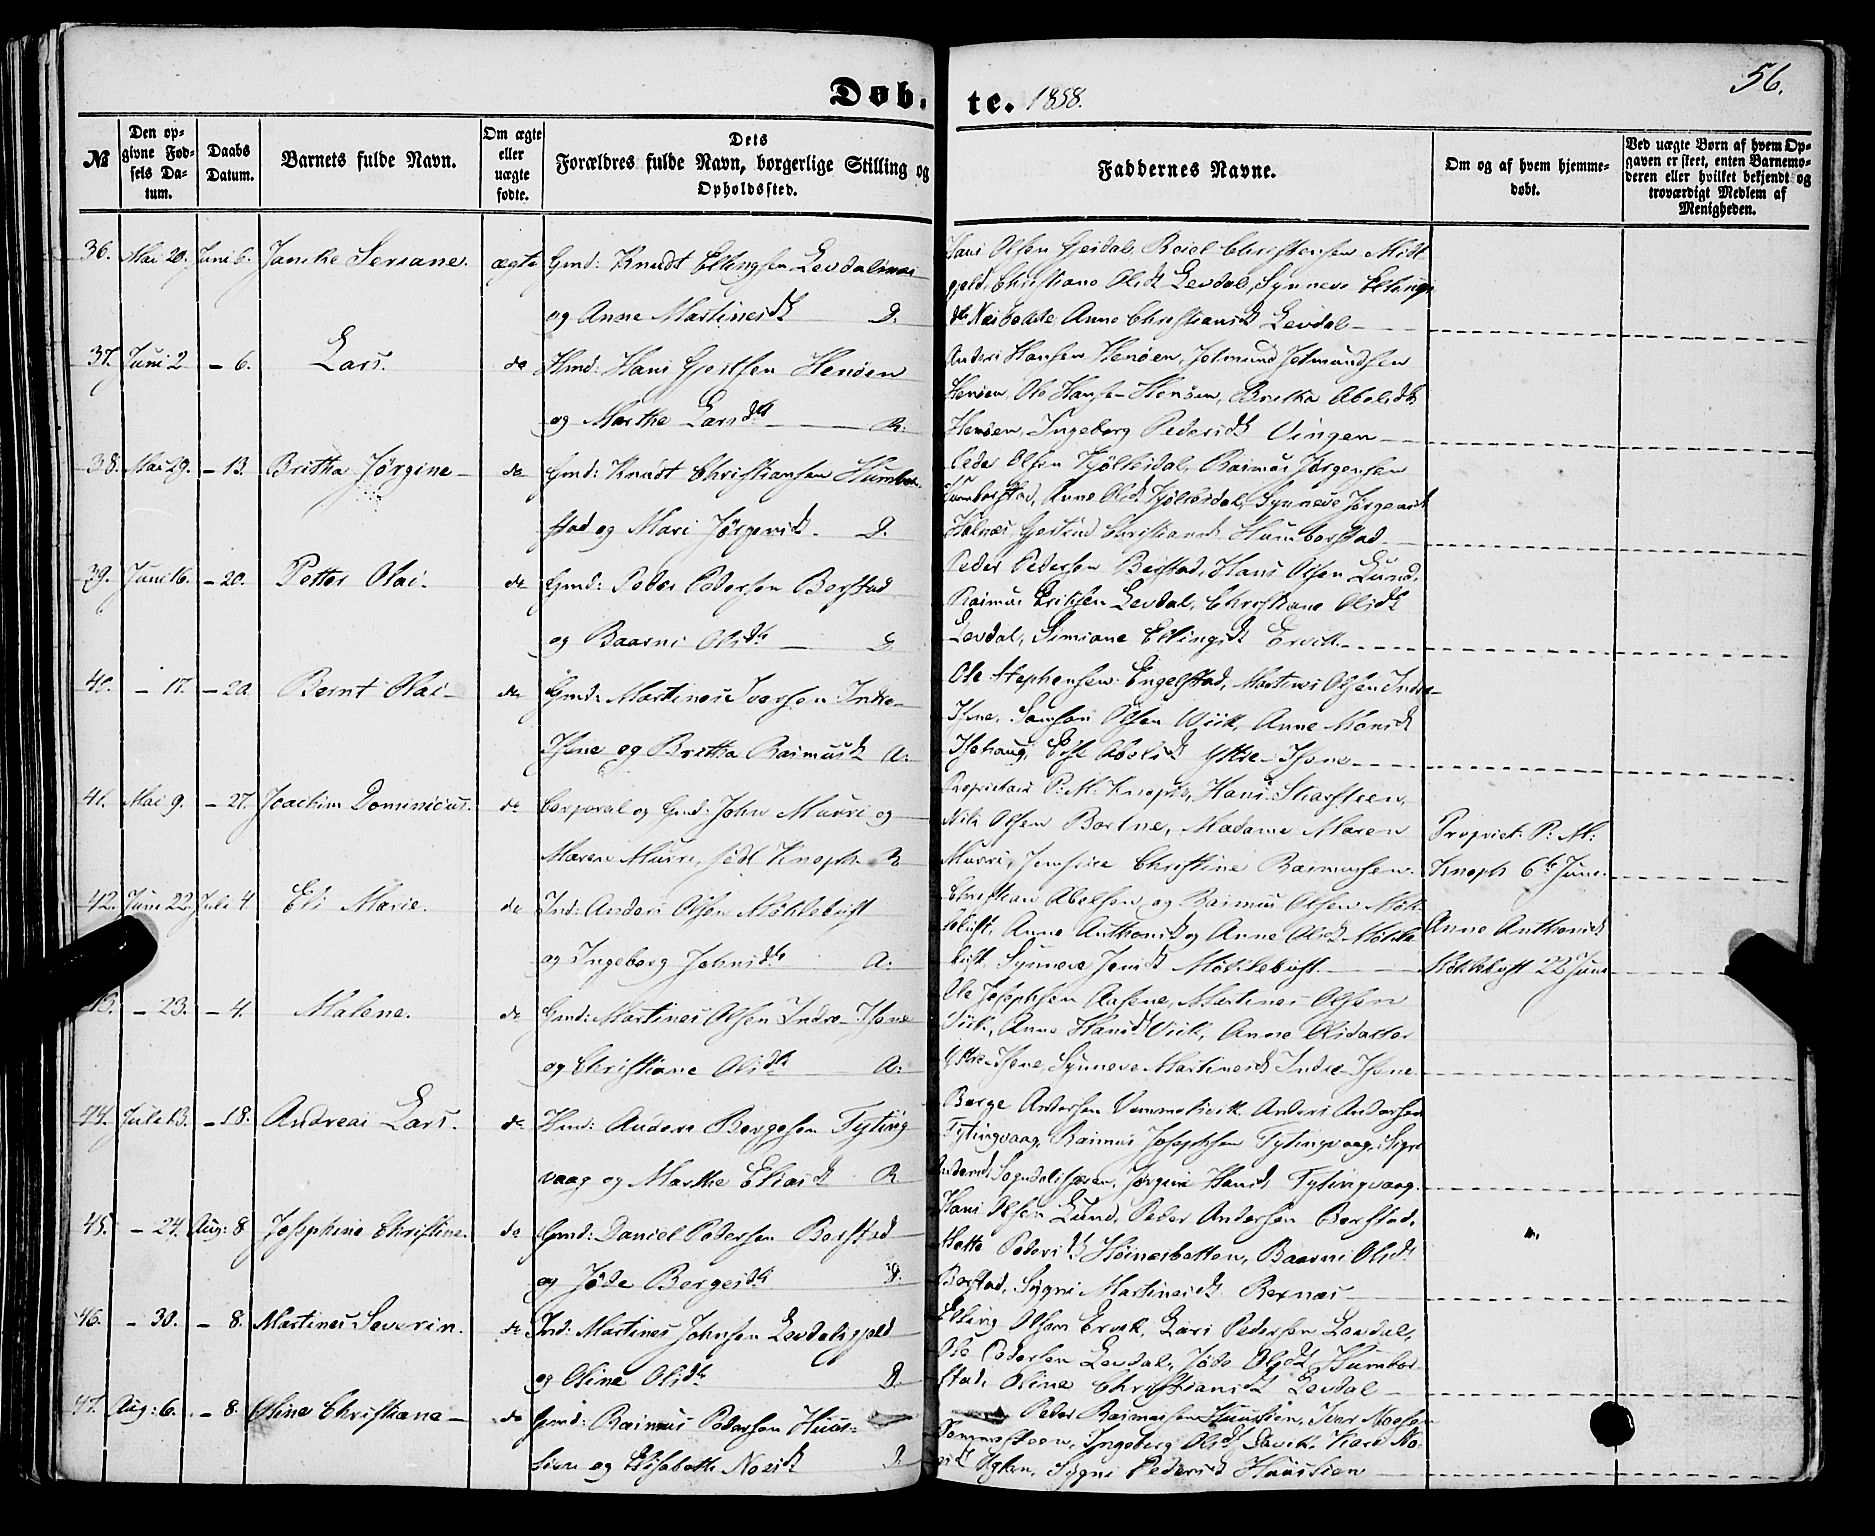 56.
Døb. te. 1858.
No
Den opgivne Fødsels Datum.
Daabs Datum.
Barnets fulde Navn.
Om ægte eller uægte fødte.
Dets
Forældres fulde Navn, borgerlige Stilling og
Opholdssted.
Faddernes Navne.
Om og af hvem hjemmedøbt.
Ved uægte Børn af hvem Opgaven er skeet, enten Barnemoderen eller hvilket bekjendt og troværdigt Medlem af Menigheden.
36. Mai 20. Juni 6. Janike Seriane. ægte Gmd: Knudt Ellingsen Levdalsnæs
og Anne Martinesdtr D.
Hans Olsen Gjesdal, Christiane Olsdtr Levdal, Synneve Ellings
Anne Christiansdtr Levdal
37. Juni 2 - 6. Lars. do Hmd: Hans Gjertsen Henøen
og Marthe Larsdtr R.
Anders Hansen Henøen, Jetmund Jetmundsen
Henøen, Ole Hansen Henøen, Brithe Abelsdtr
Henøen, Ingeborg Pedersdtr Vingen
38. Mai 29. - 13. Britha Jørgine do Gmd: Knudt Christiansen Humbor-
stad og Mari Jørgensdtr. D.
Peder Olsen Hjøllesdal, Rasmus Jørgensen
Humborstad, Anne Olsdtr Synneve Jørgensdtr
Gjertrud Christiansdtr Humborstad
39. Juni 16. - 20. Petter Olai. do Gmd: Peder Pedersen Borstad
og Baarni Olsdtr D
Peder Pedersen Borstad, Hans Olsen Lund,
Rasmus Eriksen Levdal, Christiane Olsdtr
Levdal, Simiane Ellingsdtr Ervik
40. - 17. - 20. Bernt Olai do Gmd: Martinus Iversen Indre
Hjsne og Britha Rasmusdtr A.
Ole Stephensen Engelstad, Martines Olsen Indre
Samson Olsen Viik, Anne Monsdtr
Else Abelsdtr Yttre
41. Mai 9. - 27. Joachim Dominicus. do Corporal og Gmd: John Murri og
Maren Murri, født Knoph R
Proprietair P: M: Knoph, Hans
Nils Olsen Bortne, Madame Maren
Murri, Jomfrue Christine Rasmussen.
Propriet: P: M:
Knoph 6te Juni.
42. Juni 22. Juli 4. Eli Marie. do Ind: Anders Olsen Møklebust
og Ingeborg Johnsdtr A.
Christian Abelsen og Rasmus Olsen Møk-
lebust, Anne Anthonsdtr og Anne Olsdtr Møkle
bust, Synneve Jonsdtr Møklebust.
Anne Anthonsdtr
Møklebust 22 Juni
- 23. - 4. Malene. do Gmd: Martines Olsen Indre
og Christiane Olsdtr A.
Ole Josephsen Aasene, Martines Olsen
Viik, Anne Hansdtr Viik, Anne Olsdatter
Yttre Synneve Martinesdtr Indre
44. Juli 13. - 18. Andreas Lars. do Hmd: Anders Børgesen Tyting
vaag og Marthe Eliasdtr R.
Børge Andersen Vemmelsvik Anders Andersen
Tytingvaag, Rasmus Josephsen Tytingvaag, Signe
Jørgine Hansdtr Tytingvaag.
45. - 24. Aug: 8 Josephine Christine. do Gmd: Daniel Pedersen Borstad
og Jøde Børgesdtr D.
Hans Olsen Lund, Peder Andersen Borstad,
Mette Pedersdtr Høinesbotten, Baarni Olsdtr
Borstad, Sygni Martinesdtr Rexnæs
46. - 30. - 8. Martines Severin. do Ind: Martines Johnsen Levdalsgjeld
og Oline Olsdtr D.
Elling Olsen Ervik, Lars Pedersen Levdal,
Ole Pedersen Levdal, Jøde Olsdtr Humbor
stad, Oline Christiansdtr Levdal
47. Aug: 6. - 8. Oline Christiane do Gmd: Rasmus Pedersen Huus-
sien og Elisabeth Nilsdtr D.
Peder Rasmussen Huussien, Iver
Ingeborg Olsdtr Davik, Kari
Sygni Pedersdtr Huussien